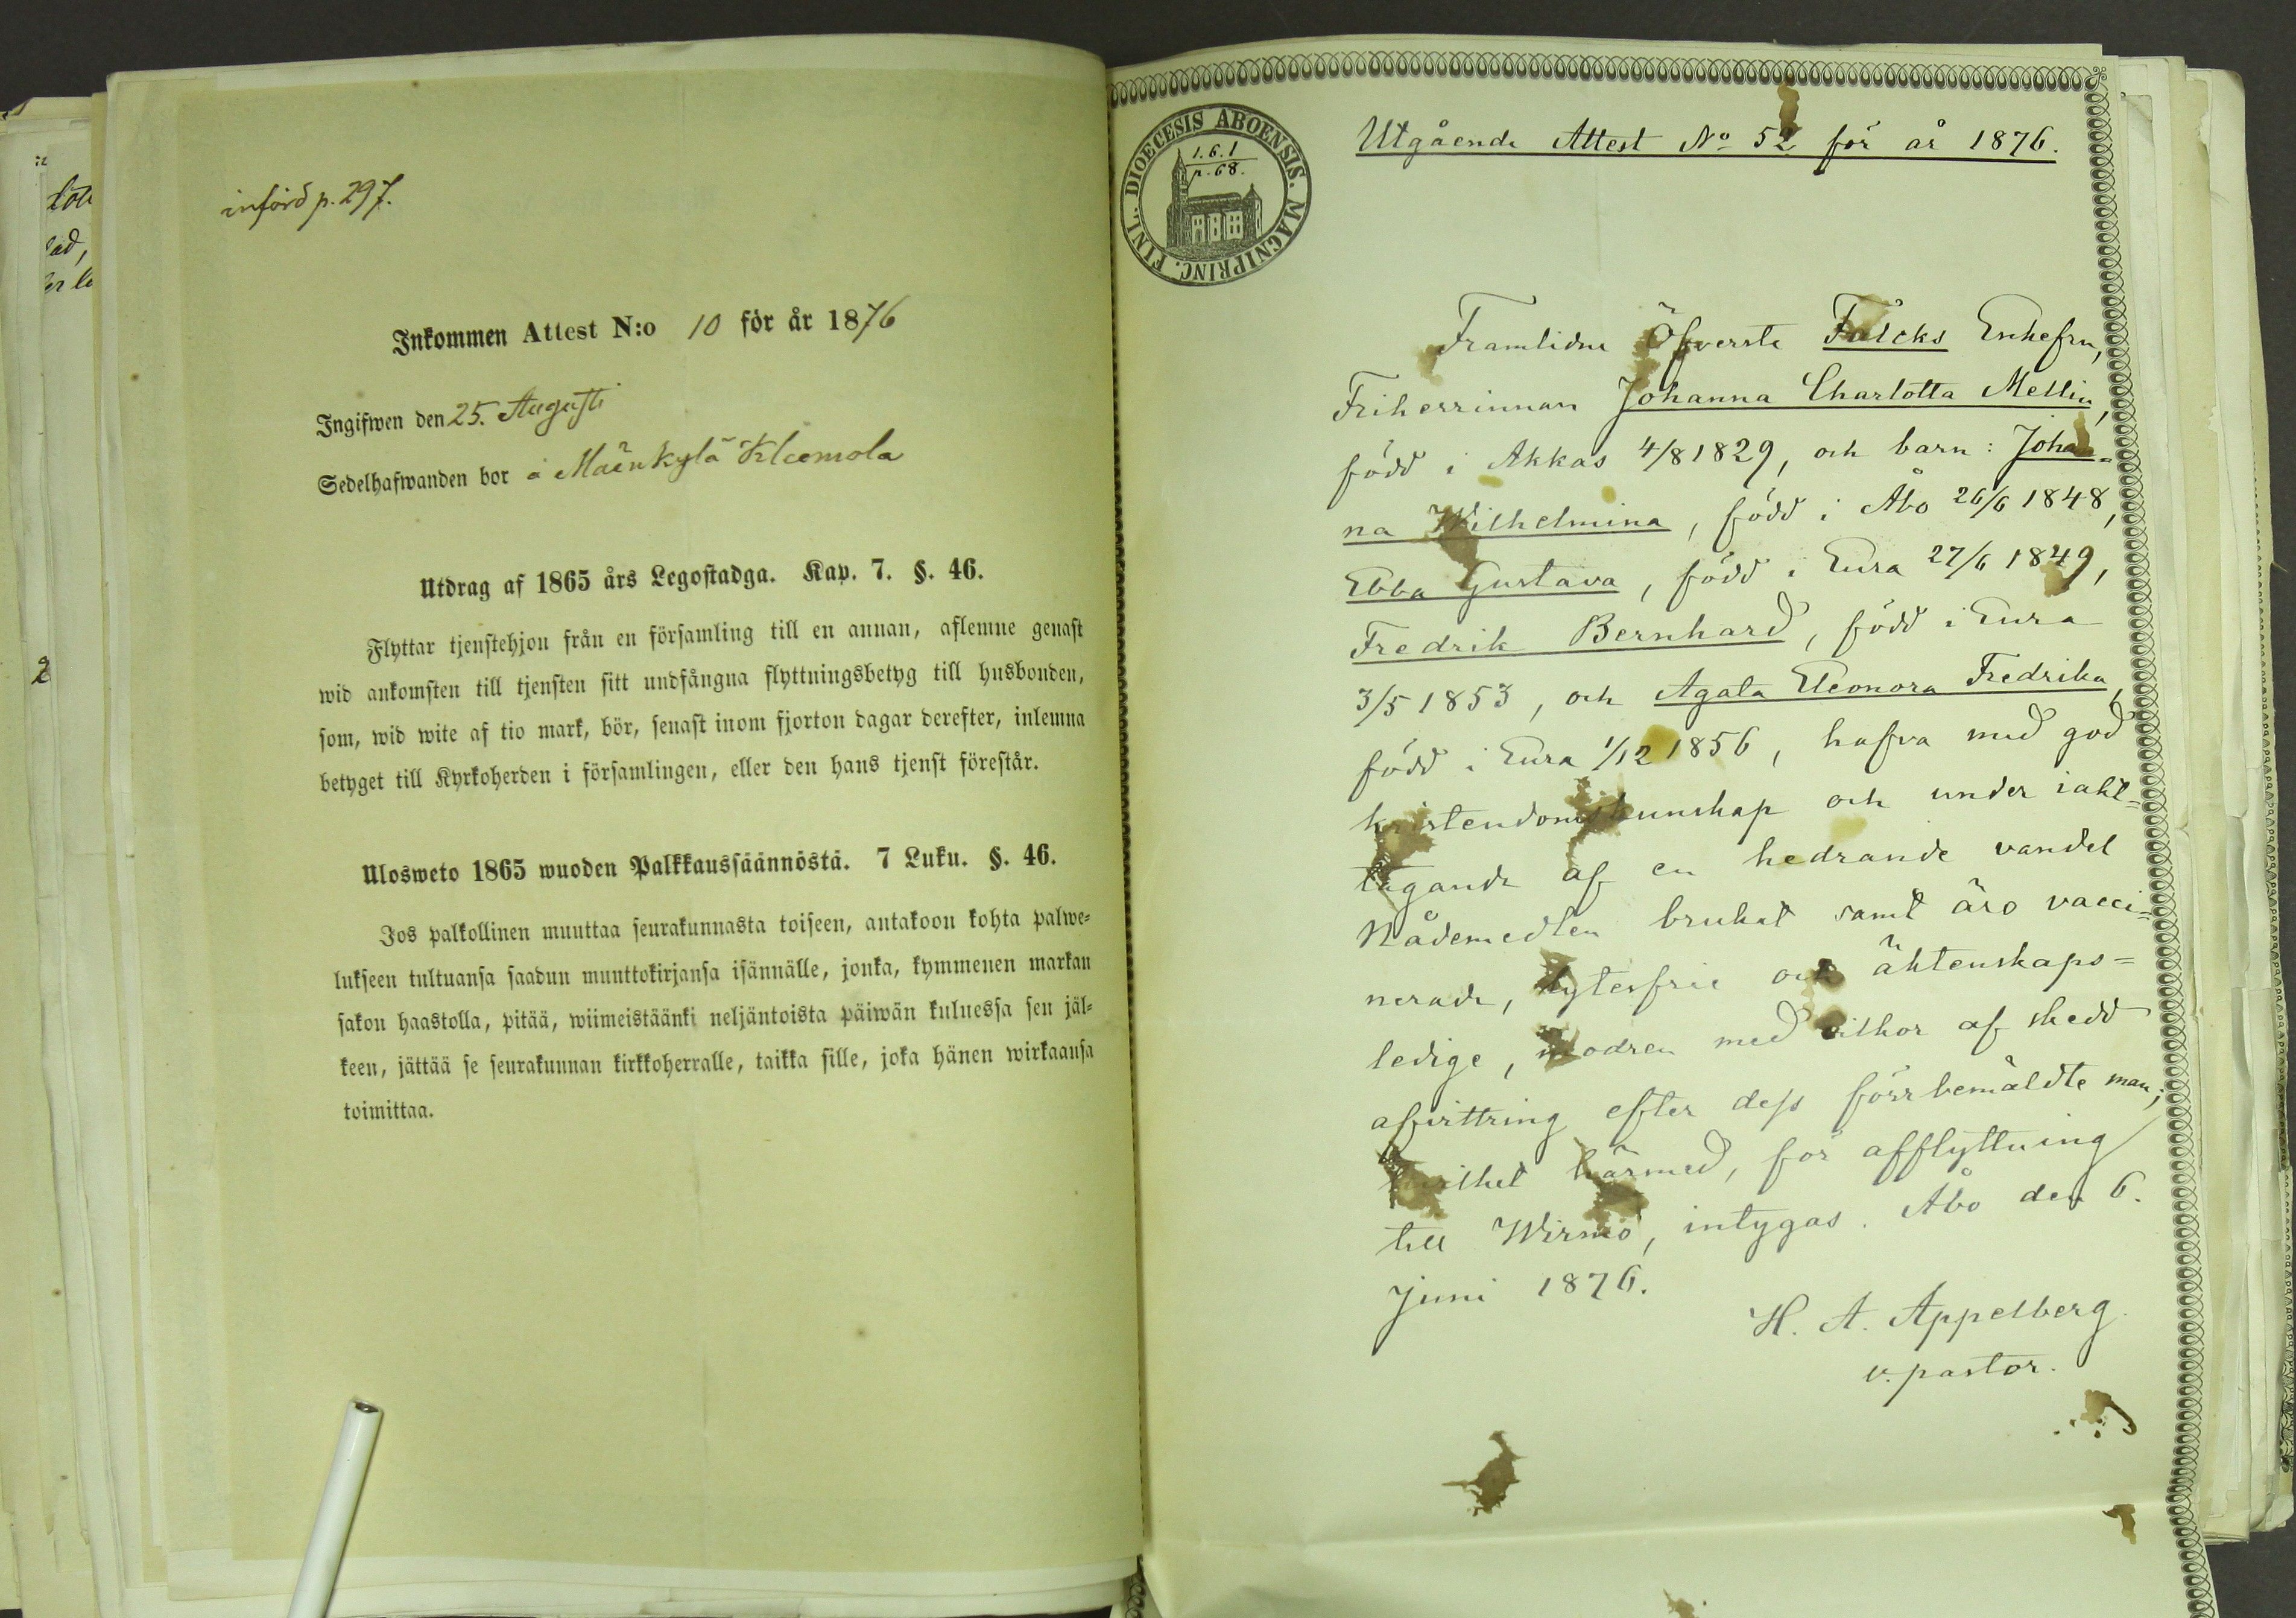 införd p. 297.
Inkommen Attest N:o 10 för år 1876
Ingifwen den 25. Augusti
Sedelhafwanden bor å Mäenkylä Kleemola
Utdrag af 1865 års Legostadga. Kap. 7. §. 46.
Flyttar tjenstehjon från en församling till en annan, aflemne genast
wid ankomsten till tjensten sitt undfångna flyttningsbetyg till husbonden,
som, wid wite af tio mark, bör, senast inom fjorton dagar derefter, inlemna
betyget till Kyrkoherden i församlingen, eller den hans tjenst förestår.
Ulosweto 1865 wuoden Palkkaussäännöstä. 7 Luku. §. 46.
Jos palkollinen muuttaa seurakunnasta toiseen, antakoon kohta palwe=
lukseen tultuansa saadun muuttokirjansa isännälle, jonka, kymmenen markan
sakon haastolla, pitää, wiimeistäänki neljäntoista päiwän kuluessa sen jäl=
keen, jättää se seurakunnan kirkkoherralle, taikka sille, joka hänen wirkaansa
toimittaa.
FINL. DIOECESIS ABOENSIS. MAGNIPRINC.
1.6.1
p. 68.
Utgående Attest No 52 för år 1876.
Framlidne Öfverste Falcks Enkefru,
Friherrinnan Johanna Charlotta Mellin,
född i Akkas 4/8 1829, och barn: Johan=
na Wilhelmina, född i Åbo 26/6 1848,
Ebba Gustava, född i Eura 27/6 1849,
Fredrik Bernhard, född i Eura
3/5 1853, och Agata Eleonora Fredrika,
född i Eura 1/12 1856, hafva med god
kristendomskunskap och under iakt=
tagande af en hedrande vandel
Nådemedlen brukat samt äro vacci=
nerade, lytesfrie och äktenskaps=
ledige, modren med vilkor af skedd
afvittring efter dess förrbemäldte man;
hvilket härmed, för afflyttning
till Wirmo, intygas. Åbo den 6.
Juni 1876.
H. A. Appelberg.
v. pastor.